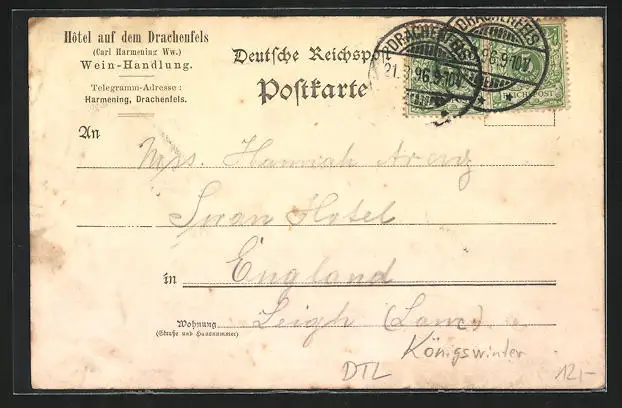 Hôtel auf dem Drachenfels
(Carl Harmening Ww.)
Wein-Handlung.
Telegramm-Adresse:
Harmening, Drachenfels.
Deutsche Reichspost
Postkarte
DRACHENFELS
96.9-10V.
DRACHENFELS
96.9-10V.
REICHSPOST
An
Mrs. Hannah
Swan Hotel
in England
Wohnung Leigh (Lanc)
(Straße und Hausnummer)
Königswinter
DTL
12,-